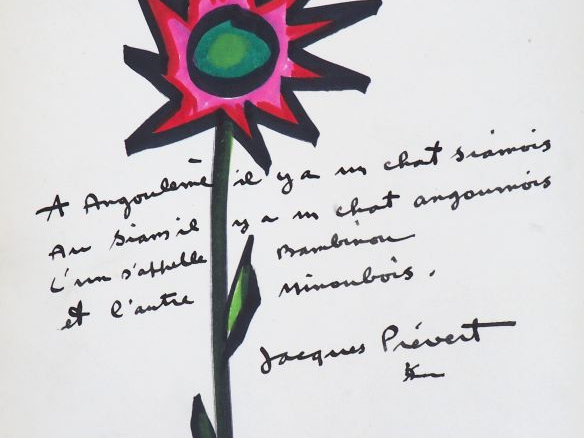 A Angoulème il y a un chat siamois
Au Siam il y a un chat angoumois
L'un s'appelle Bambinou
et l'autre Minoubois.
Jacques Prévert